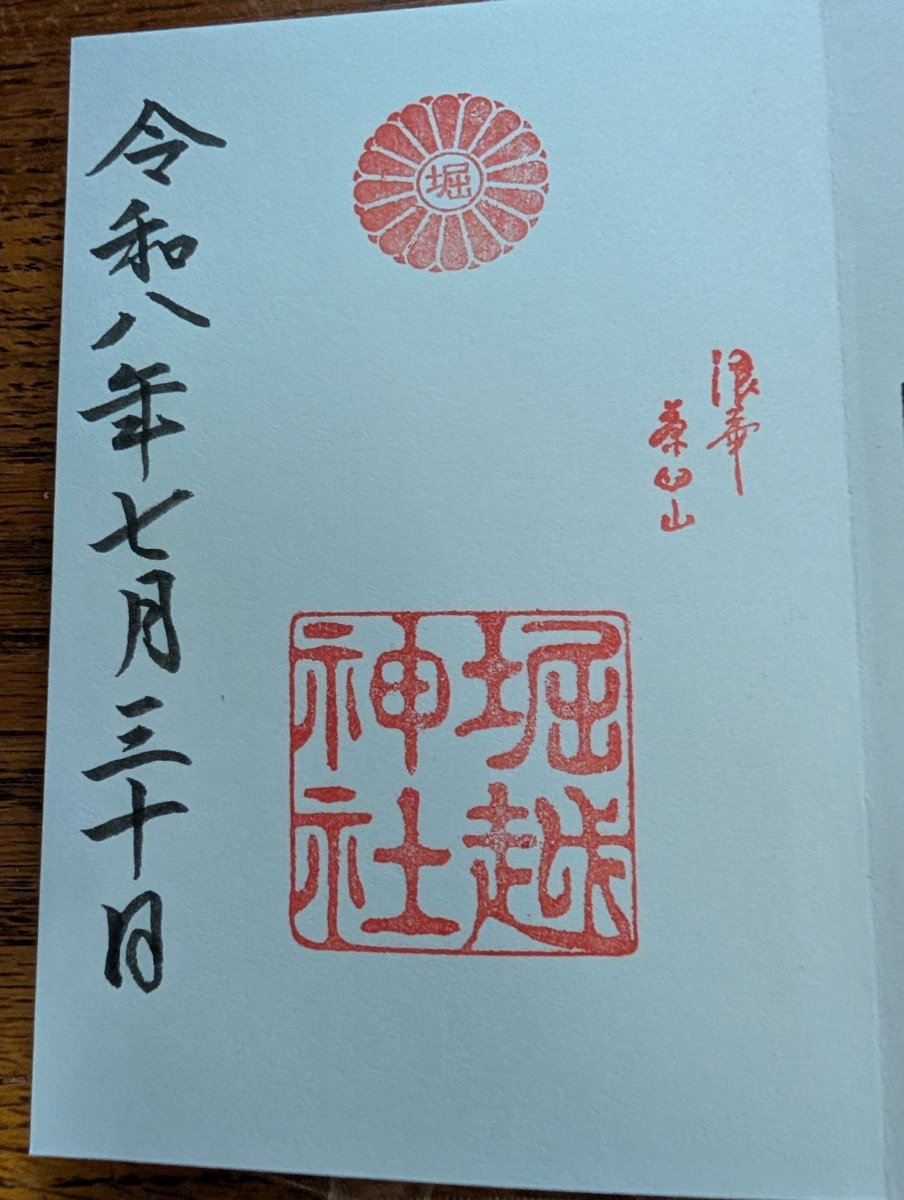 堀
浪華
茶臼山
堀越
神社
令和八年七月三十日